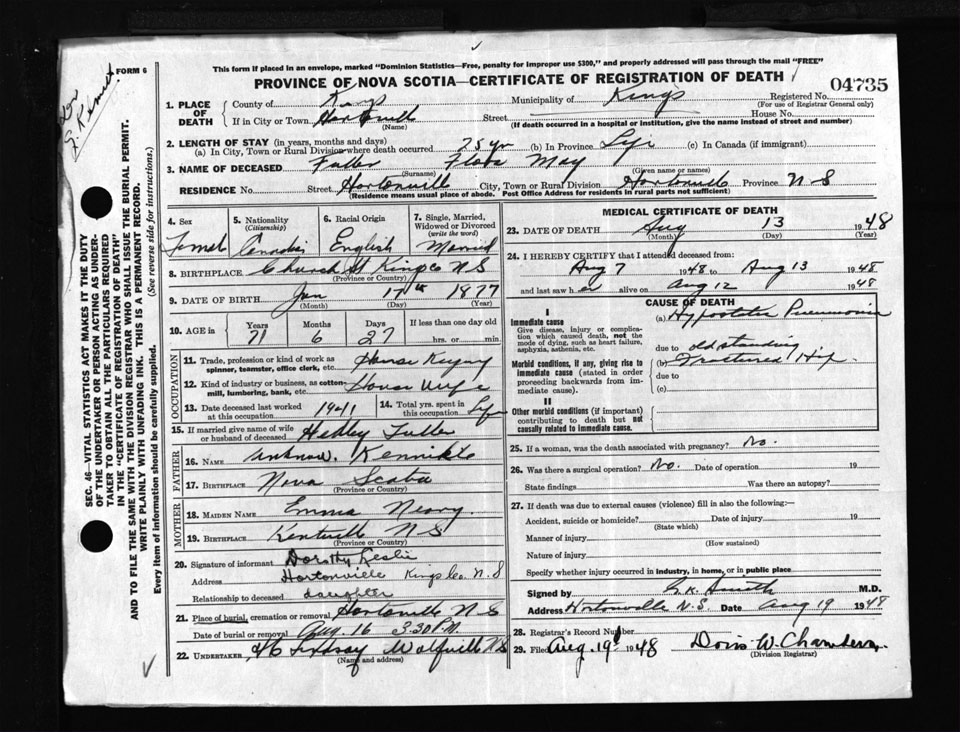 This form if placed in an envelope, marked "Dominion Statistics—Free, penalty for improper use $300," and properly addressed will pass through the mail "FREE"
FORM 6
PROVINCE OF NOVA SCOTIA—CERTIFICATE OF REGISTRATION OF DEATH
04735
1. PLACE OF DEATH
County of Kings
Municipality of Kings
Registered No.
(For use of Registrar General only)
If in City or Town Hortonville
(Name)
Street
House No.
(If death occurred in a hospital or institution, give the name instead of street and number)
2. LENGTH OF STAY (in years, months and days)
(a) In City, Town or Rural Division where death occurred 25 yr (b) In Province Life (c) In Canada (if immigrant)
3. NAME OF DECEASED Fuller Flora May
(Surname) (Given name or names)
RESIDENCE No. Street Hortonville City, Town or Rural Division Hortonville Province N S
(Residence means usual place of abode. Post Office Address for residents in rural parts not sufficient)
4. Sex
5. Nationality (Citizenship)
6. Racial Origin
7. Single, Married, Widowed or Divorced (write the word)
Canadian English Married
8. BIRTHPLACE Church St Kings co N S
(Province or Country)
9. DATE OF BIRTH Jan 17th 1877
(Month) (Day) (Year)
10. AGE in
Years Months Days If less than one day old
71 6 27 hrs. or min.
OCCUPATION
11. Trade, profession or kind of work as spinner, teamster, office clerk, etc. House Keeping
12. Kind of industry or business, as cotton mill, lumbering, bank, etc. House Wife
13. Date deceased last worked at this occupation 1941
14. Total yrs. spent in this occupation Life
15. If married give name of wife or husband of deceased Hedley Fuller
FATHER
16. NAME unknow.
17. BIRTHPLACE Nova Scotia
(Province or Country)
MOTHER
18. MAIDEN NAME Emma Neary
19. BIRTHPLACE Kentville N S
(Province or Country)
20. Signature of informant Dorothy Leslie
Address Hortonville Kings Co. N. S
Relationship to deceased daughter
21. Place of burial, cremation or removal Hortonville N S
Date of burial or removal Aug. 16 3.30 P.M.
22. UNDERTAKER Lindsay Wolfville N S
(Name and address)
MEDICAL CERTIFICATE OF DEATH
23. DATE OF DEATH Aug 13 1948
(Month) (Day) (Year)
24. I HEREBY CERTIFY that I attended deceased from:
Aug 7 1948 to Aug 13 1948
and last saw h er alive on Aug 12 1948
CAUSE OF DEATH
I
Immediate cause
Give disease, injury or complication which caused death, not the mode of dying, such as heart failure, asphyxia, asthenia, etc.
(a) Hypostatic Pneumonia
due to old standing
Morbid conditions, if any, giving rise to immediate cause (stated in order proceeding backwards from immediate cause)
(b) Fractured Hip
due to
(c)
II
Other morbid conditions (if important) contributing to death but not causally related to immediate cause.
25. If a woman, was the death associated with pregnancy? No.
26. Was there a surgical operation? No. Date of operation 19
State findings Was there an autopsy?
27. If death was due to external causes (violence) fill in also the following:—
Accident, suicide or homicide? Date of injury 19
(State which)
Manner of injury
(How sustained)
Nature of injury
Specify whether injury occurred in industry, in home, or in public place
Signed by G.K. Smith M.D.
Address Hortonville N.S. Date Aug 19 1948
28. Registrar's Record Number
29. Filed Aug. 19 1948 Doris W. Chambers
(Division Registrar)
SEC. 46—VITAL STATISTICS ACT MAKES IT THE DUTY
OF THE UNDERTAKER OR PERSON ACTING AS UNDER-
TAKER TO OBTAIN ALL THE PARTICULARS REQUIRED
IN THE "CERTIFICATE OF REGISTRATION OF DEATH"
AND TO FILE THE SAME WITH THE DIVISION REGISTRAR WHO SHALL ISSUE THE BURIAL PERMIT.
WRITE PLAINLY WITH UNFADING INK. THIS IS A PERMANENT RECORD.
Every item of information should be carefully supplied. (See reverse side for instructions.)